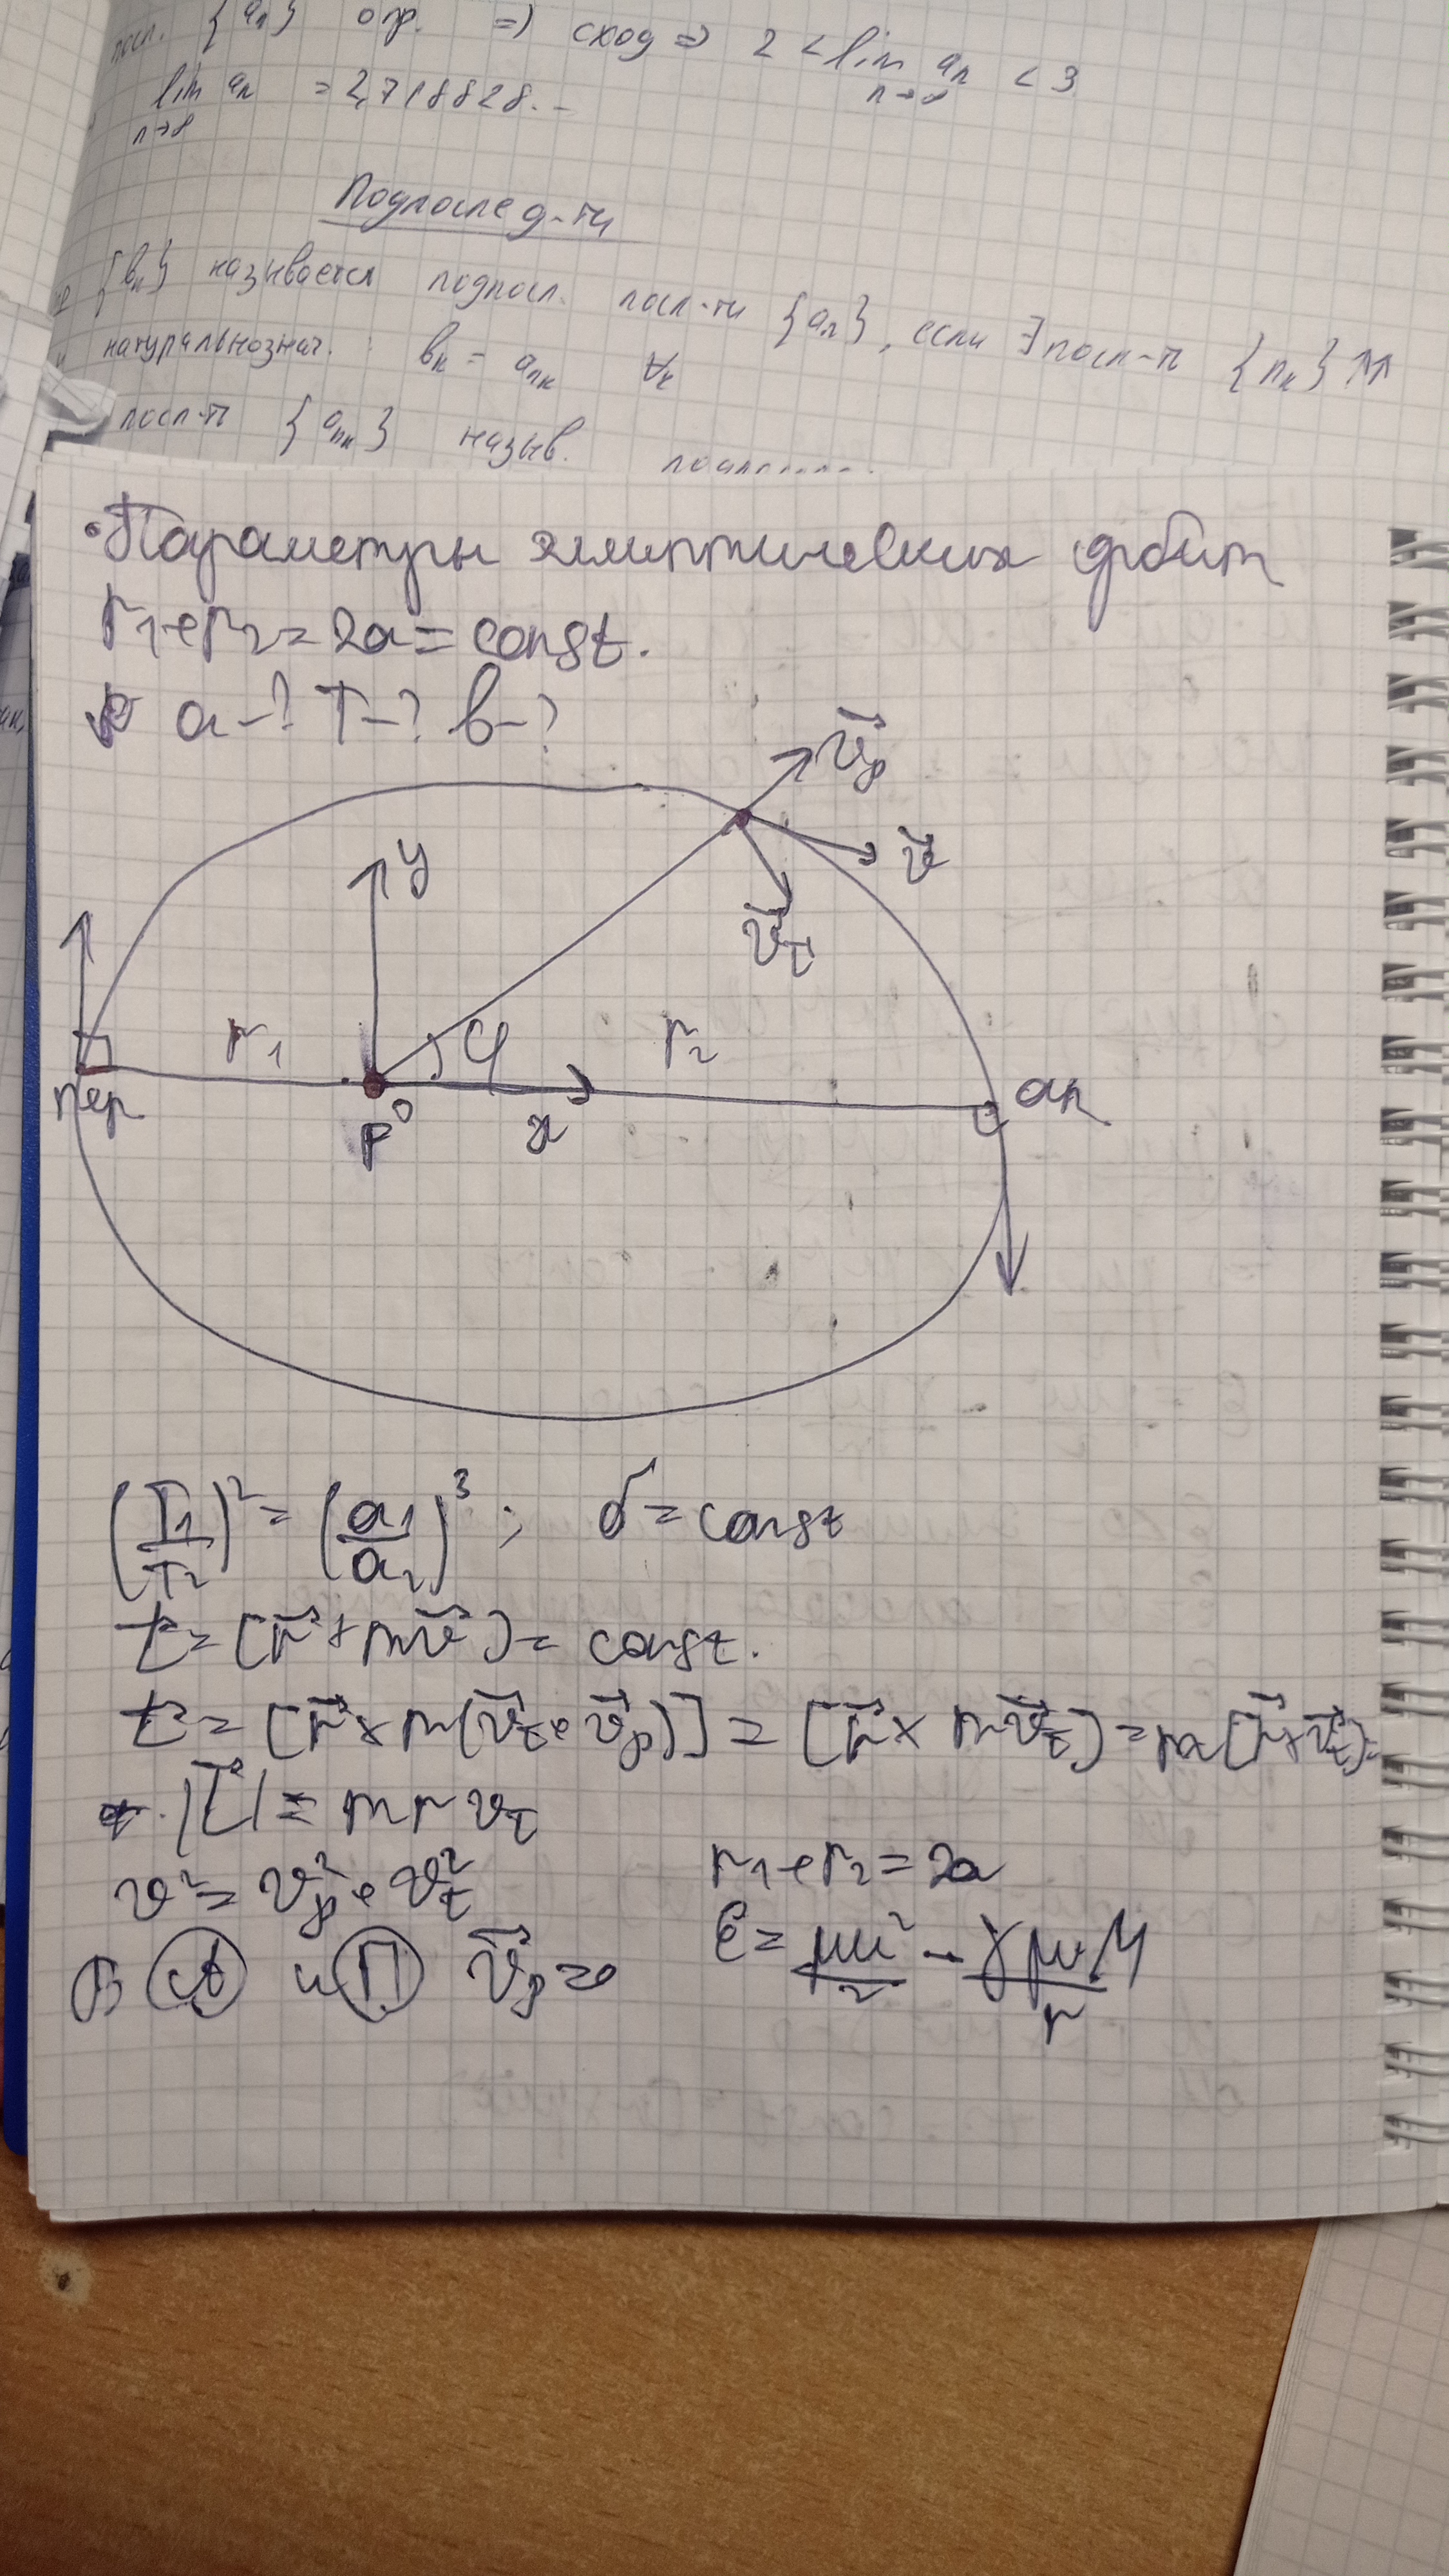 посл. {aₙ} огр. ⇒ сход ⇒ 2 < lim aₙ < 3
n→∞
lim aₙ = 2,718828...
n→∞
Подпослед-ти
{bₖ} называется подпосл. посл-ти {aₙ}, если ∃ посл-ть {nₖ} ↑↑
натуральнознач. : bₖ = aₙₖ ∀ₖ
посл-ть {aₙₖ} назыв.
• Параметры эллиптических орбит
r₁ + r₂ = 2a = const.
a - ? T - ? b - ?
v⃗ᵨ
y
v⃗
v⃗τ
r₁
φ
r₂
пер
ап
F
0
x
(T₁/T₂)² = (a₁/a₂)³ ; σ = const
L⃗ = [r⃗ × mv⃗] = const.
L⃗ = [r⃗ × m(v⃗τ + v⃗ᵨ)] = [r⃗ × mv⃗τ] = m[r⃗ × v⃗τ] =
|L⃗| = m r vτ
v² = vᵨ² + vτ²
r₁ + r₂ = 2a
В А и П v⃗ᵨ = 0
E = mu²/2 - γmM/r